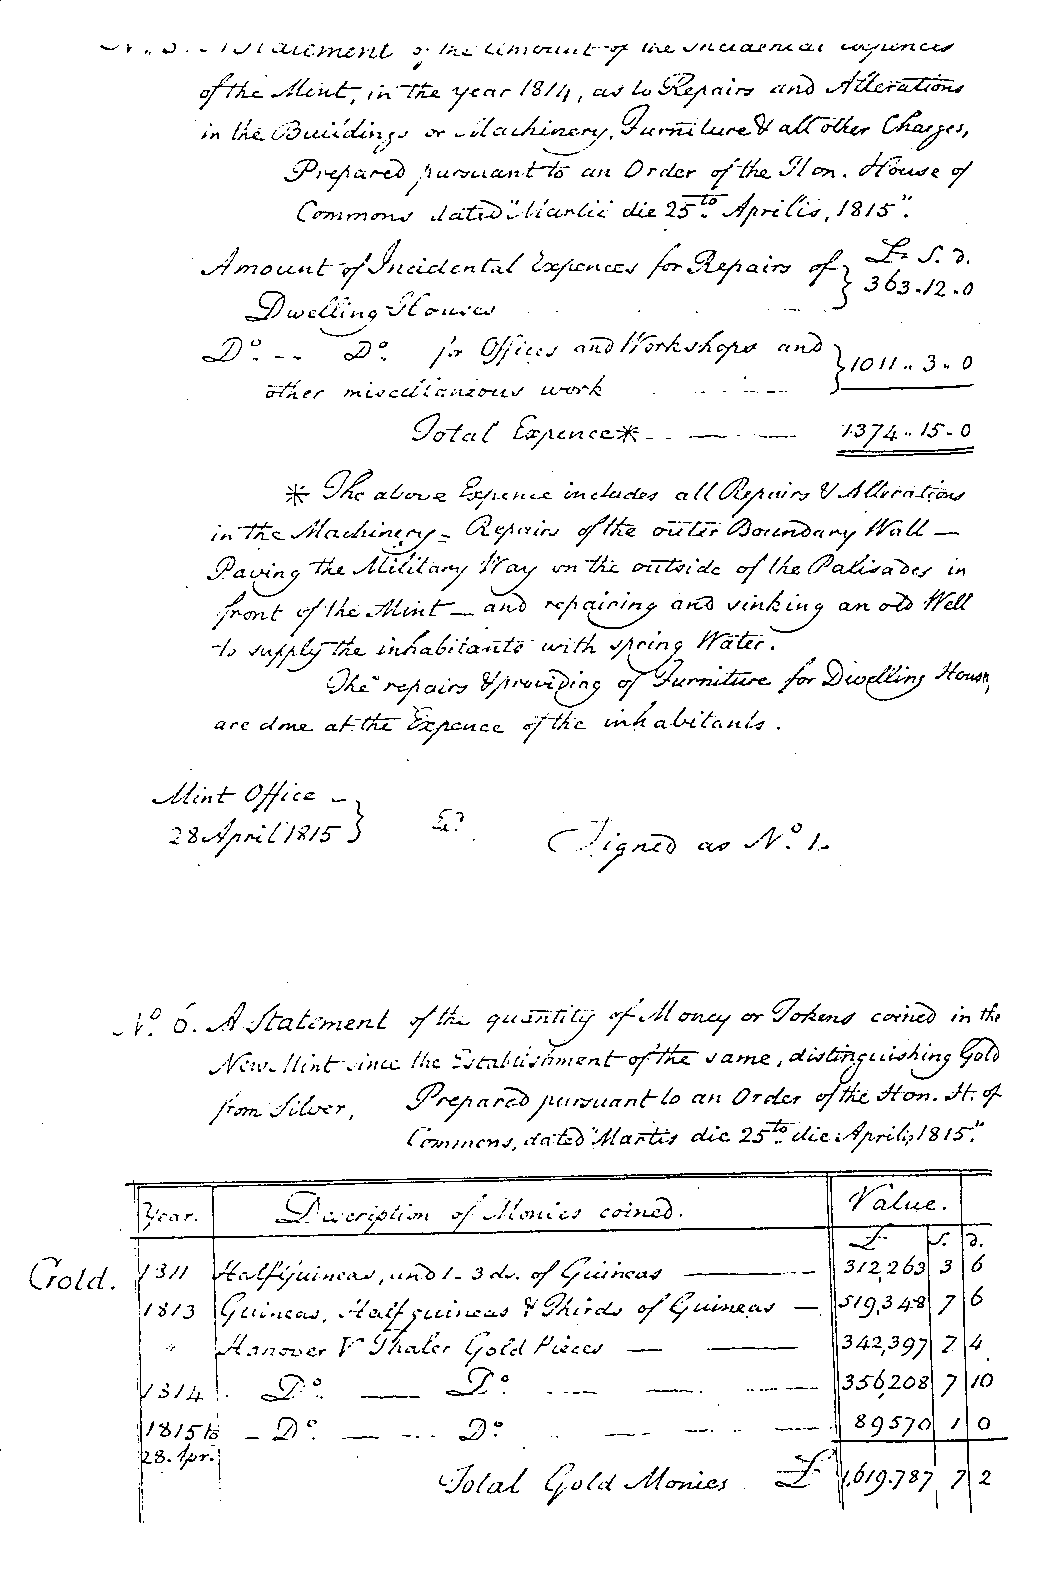 N. 5. A Statement of the Amount of the Incidental Expences
of the Mint, in the year 1814, as to Repairs and Alterations
in the Buildings or Machinery, Furniture & all other Charges,
Prepared pursuant to an Order of the Hon. House of
Commons dated "Martis die 25to. Aprilis, 1815".
£. S. D.
Amount of Incidental Expences for Repairs of } 363-12-0
Dwelling Houses
Do. -- Do. for Offices and Workshops and } 1011..3..0
other miscellaneous work
Total Expence* 1374..15-0
* The above Expence includes all Repairs & Alterations
in the Machinery - Repairs of the outer Boundary Wall —
Paving the Military Way on the outside of the Palisades in
front of the Mint — and repairing and sinking an old Well
to supply the inhabitants with spring Water.
The repairs & providing of Furniture for Dwelling Houses,
are done at the Expence of the inhabitants.
Mint Office -
28 April 1815 }
Signed as No. 1.
No. 6. A Statement of the quantity of Money or Tokens coined in the
New Mint since the Establishment of the same, distinguishing Gold
from Silver, Prepared pursuant to an Order of the Hon. H. of
Commons, dated "Martis die 25to. die April, 1815."
Year. Description of Monies coined. Value.
£ S. D.
Gold. 1811 Half Guineas, and 1-3ds. of Guineas — 312,263 3 6
1813 Guineas, Half guineas & Thirds of Guineas — 519,348 7 6
" Hanover V Thaler Gold Pieces — 342,397 7 4
1814 Do. — Do. 356,208 7 10
1815 to - Do. — Do. 89570 1 0
28. Apr.
Total Gold Monies £ 1,619.787 7 2